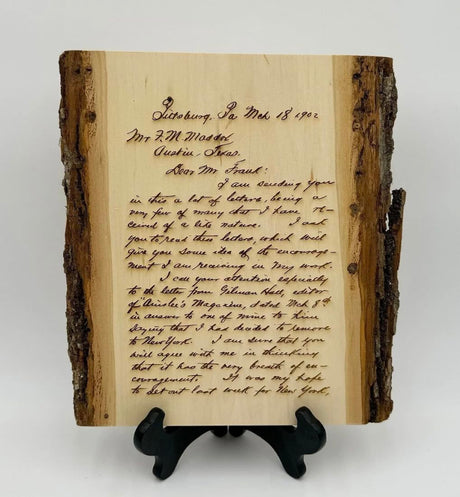 Pittsburg, Pa Mch 18 1902
Mr F. M. Maddox
Austin - Texas.
Dear Mr Frank:
I am sending you
in this a lot of letters, being a
very few of many that I have re-
ceived of a like nature. I ask
you to read these letters, which will
give you some idea of the encourage-
ment I am receiving in my work.
I call your attention especially
to the letter from Gilman Hall, editor
of Ainslee's Magazine, dated Mch 8th
in answer to one of mine to him
saying that I has decided to remove
to New York. I am sure that you
will agree with me in thinking
that it has the very breath of en-
couragement. It was my hope
to set out last week for New York,